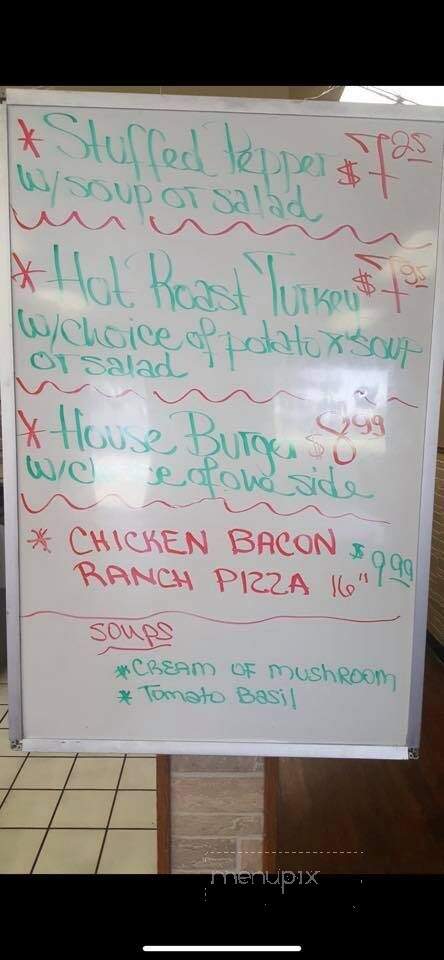 * Stuffed Pepper $7.25
w/soup or salad
* Hot Roast Turkey $7.95
w/choice of potato & soup
or salad
* House Burger $8.99
w/choice of one side
* CHICKEN BACON $9.99
RANCH PIZZA 16"
SOUPS
* CREAM OF MUSHROOM
* Tomato Basil
menupix